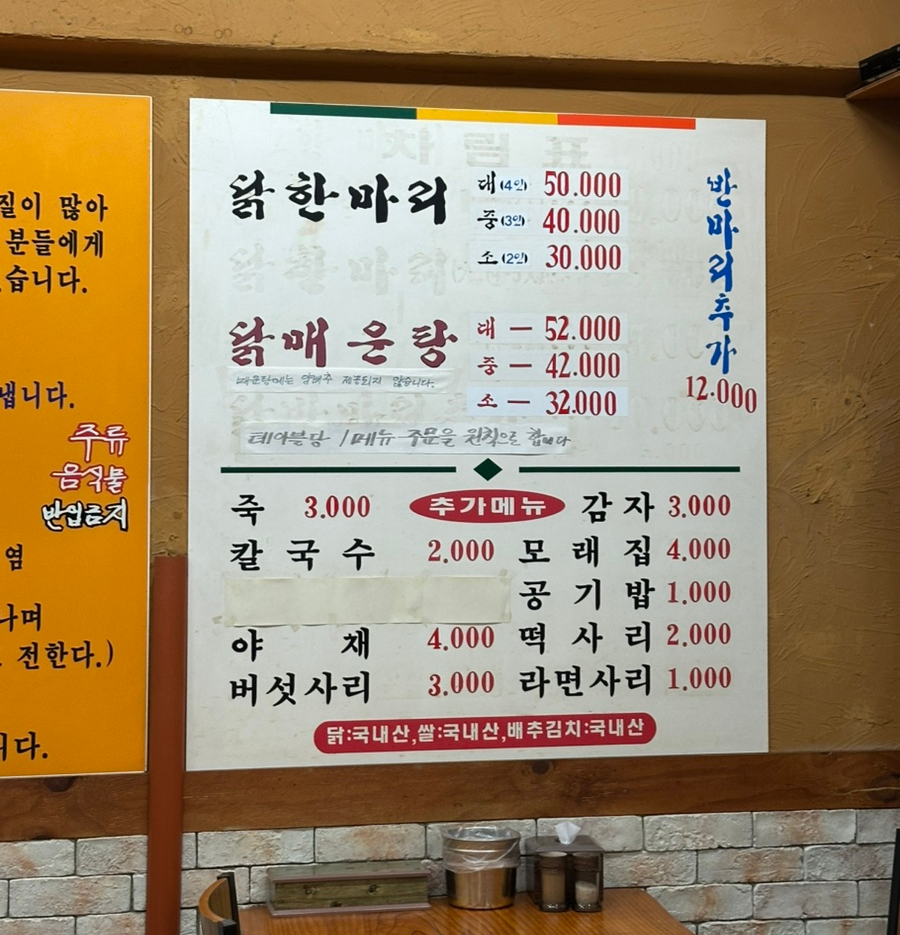 질이 많아
분들에게
습니다.
냅니다.
주류
음식물
반입금지
염
나며
전한다.)
니다.
차림표
닭한마리
대(4인) 50.000
중(3인) 40.000
소(2인) 30.000
반마리추가
12.000
닭매운탕
대 — 52.000
중 — 42.000
소 — 32.000
매운탕에는 양배추 제공되지 않습니다.
테이블당 1메뉴 주문을 원칙으로 합니다
추가메뉴
죽 3.000 감자 3.000
칼국수 2.000 모래집 4.000
공기밥 1.000
야채 4.000 떡사리 2.000
버섯사리 3.000 라면사리 1.000
닭:국내산,쌀:국내산,배추김치:국내산